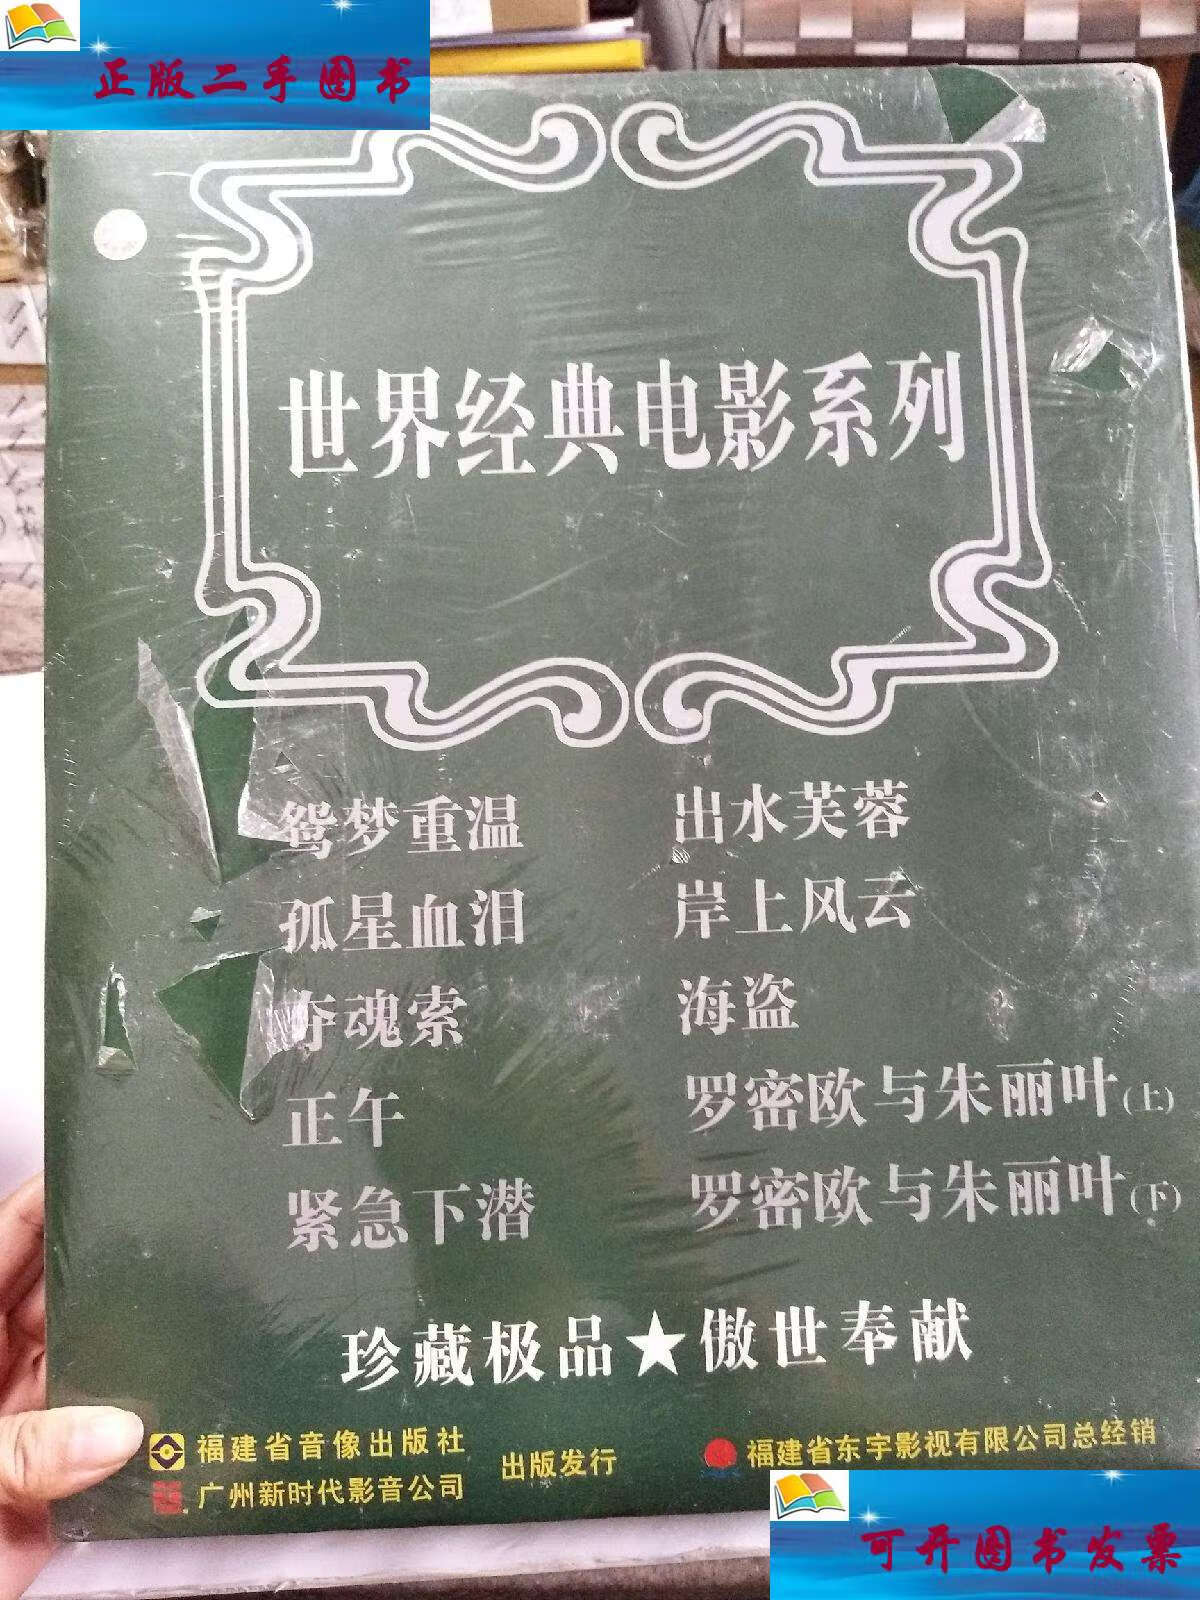 正版二手图书
世界经典电影系列
鸳梦重温
孤星血泪
夺魂索
正午
紧急下潜
出水芙蓉
岸上风云
海盗
罗密欧与朱丽叶(上)
罗密欧与朱丽叶(下)
珍藏极品★傲世奉献
福建省音像出版社
广州新时代影音公司
出版发行
福建省东宇影视有限公司总经销
可开图书发票